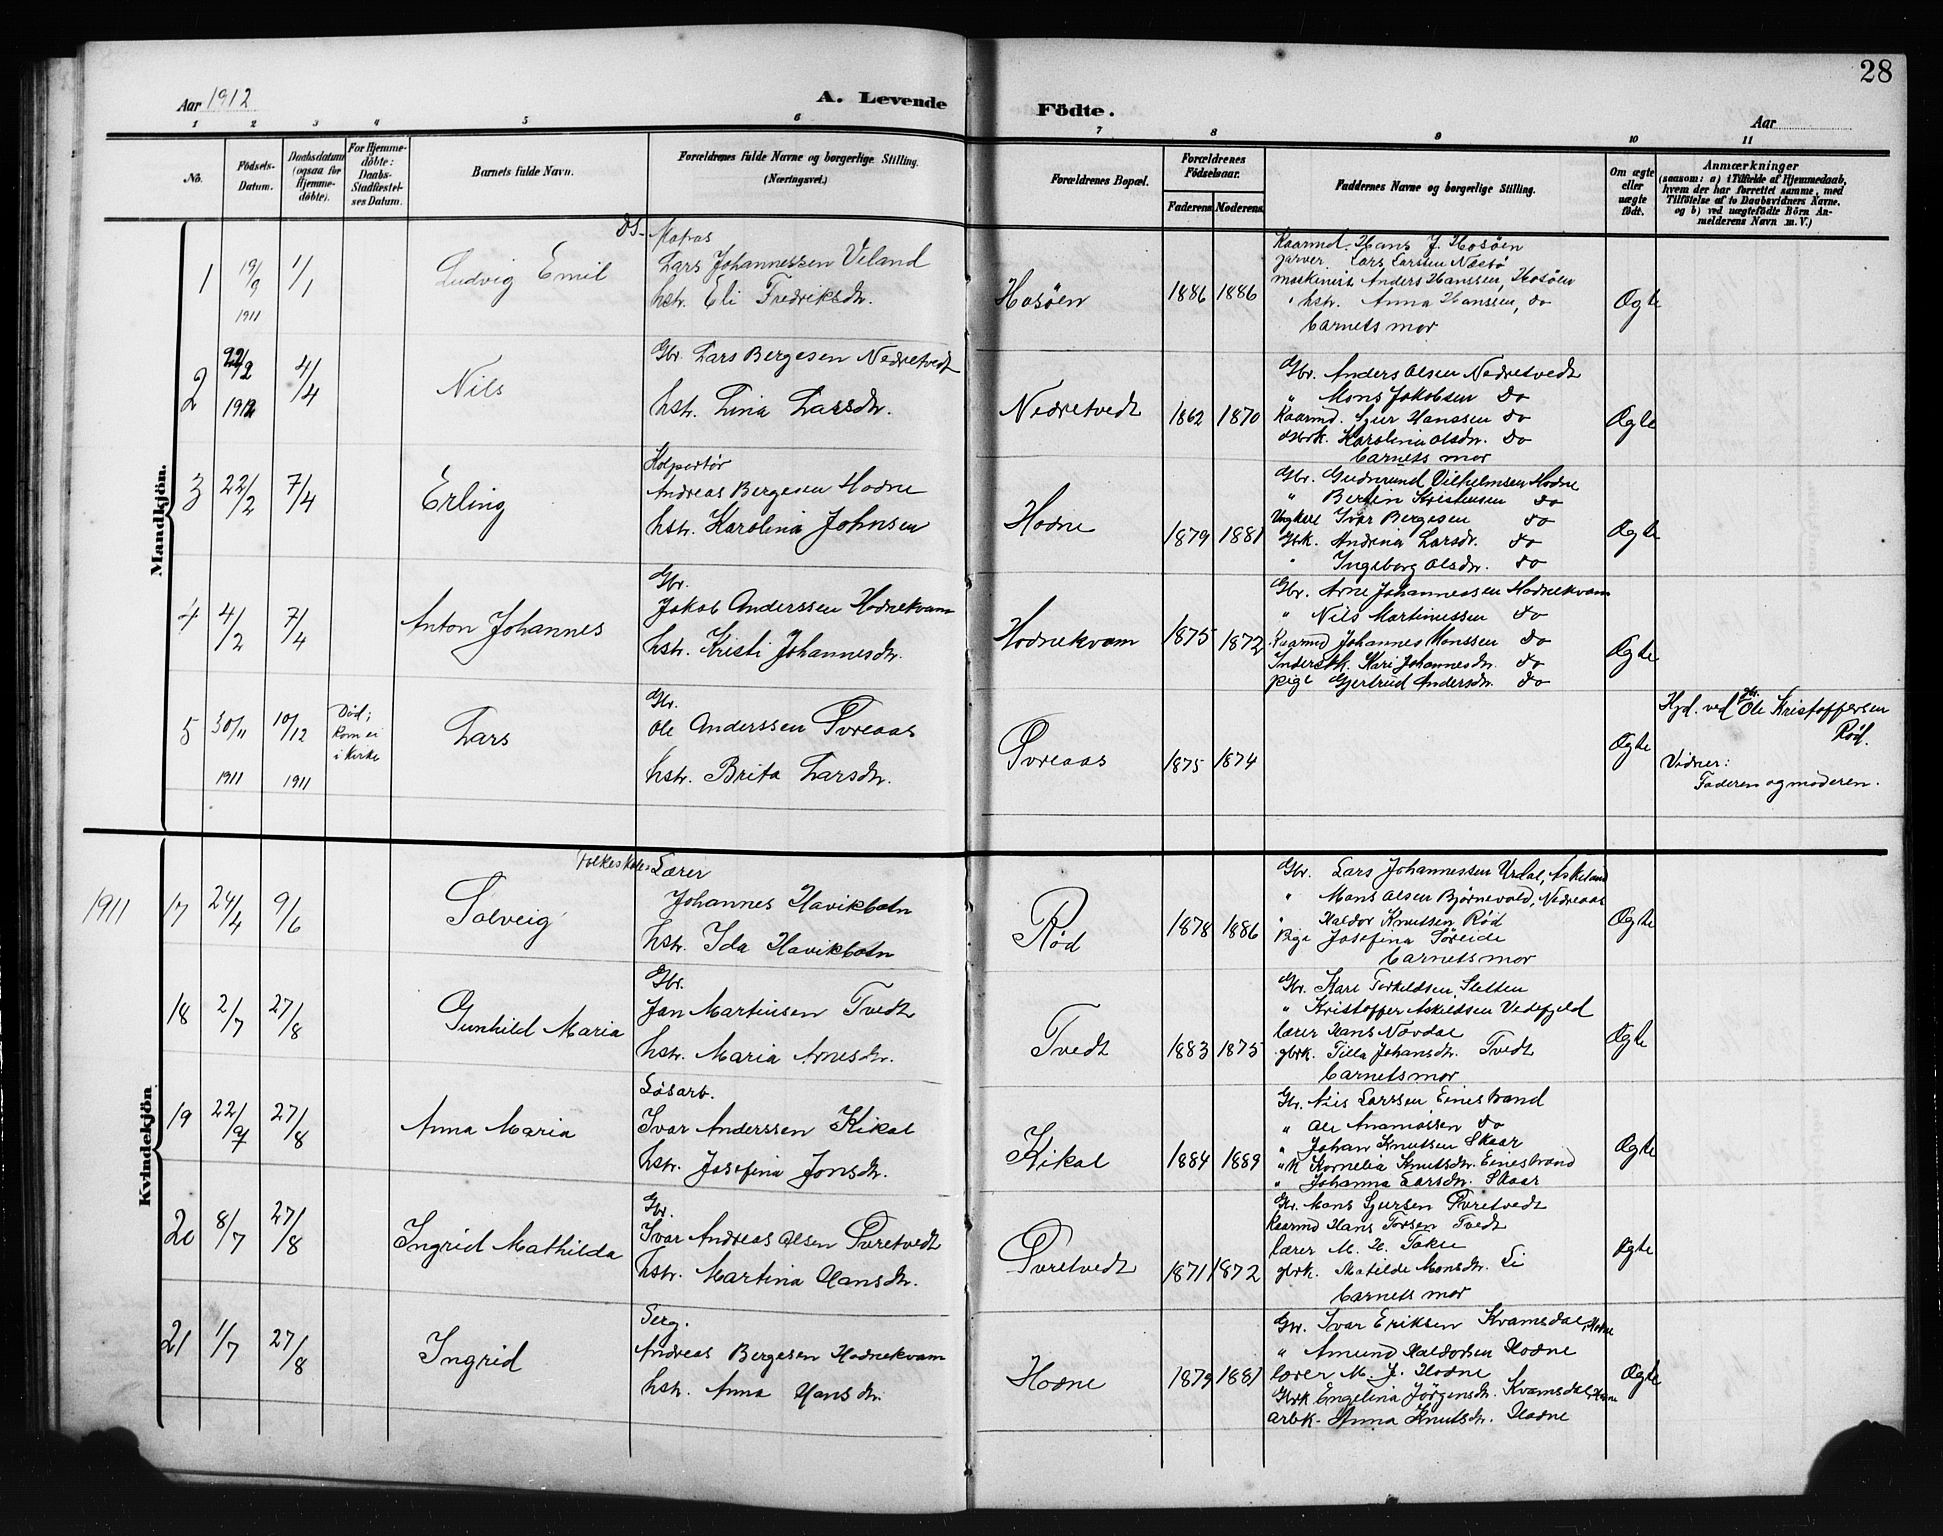 28
Aar 1912
A. Levende Födte.
Aar
1 2 3 4 5 6 7 8 9 10 11
No.
Födsels-Datum.
Daabsdatum (ogsaa for Hjemme-döbte).
For Hjemme-döbte: Daabs-Stadfæstel-ses Datum.
Barnets fulde Navn.
Forældrenes fulde Navne og borgerlige Stilling.
(Næringsvei.)
Forældrenes Bopæl.
Forældrenes Födselsaar.
Faderens Moderens
Faddernes Navne og borgerlige Stilling.
Om ægte eller uægte födt.
Anmærkninger
(saasom: a) i Tilfælde af Hjemmedaab,
hvem der har forrettet samme, med
Tilföielse af to Daabsvidners Navne.
og b) ved uægtefödte Börn An-
melderens Navn m. V.)
Mandkjön.
1 19/9 1911 1/1
Ludvig Emil
DS. Matros
Lars Johannessen Veland
hstr. Eli Fredriksdtr.
Hosöen
1886 1886
Kaarmd. Hans J. Hosöen
garver Lars Larssen Næsbö
maskinist Anders Hanssen, Hosöen
hstr. Anna Hanssen, do
barnets mor
Ægte
2 22/2 1912 4/4
Nils
Gbr. Lars Bergesen Nedretvedt
hstr. Lina Larsdtr.
Nedretvedt
1862 1870
Gbr. Anders Olsen Nedretvedt
" Mons Jakobsen do
Kaarmd. Sjur Hanssen do
Gbrk. Karolina Olsdtr. do
barnets mor
Ægte
3 22/2 7/4
Erling
Kolportör
Andreas Bergesen Hodne
hstr. Karolina Johnsen
Hodne
1879 1881
Gbr. Gudmund Vilhelmsen Hodne
" Bertin Kristensen do
Ungkarl Ivar Bergesen do
Gbrk. Andrina Larsdr. do
" Ingeborg Olsdtr. do
Ægte
4 4/2 7/4
Anton Johannes
Gbr.
Jakob Anderssen Hodnekvam
hstr. Kristi Johannesdtr.
Hodnekvam
1875 1872
Gbr. Arne Johannessen Hodnekvam
" Nils Martinussen do
Kaarmd Johannes Monssen do
Inderstk. Kari Johannesdtr. do
pige Gjertrud Andersdtr. do
Ægte
5 30/11 1911 10/12 1911
Död;
kom ei
i kirke
Lars
Gbr.
Ole Anderssen Övreaas
hstr. Brita Larsdtr.
Övreaas
1875 1874
Ægte
Hjd. ved gbr. Ole Kristoffersen
Röd.
Vidner:
Faderen og moderen.
Kvindekjön
1911
17 24/4 9/6
Solveig
Folkeskole-Lærer
Johannes Havikbotn
hstr. Ida Havikbotn
Röd
1878 1886
Gbr. Lars Johannessen Urdal, Askeland
" Mons Olsen Björnevold, Nedreaas
" Haldor Knutsen Röd
Pige Josefina Söreide
barnets mor
Ægte
18 2/7 27/8
Gunhild Maria
Gbr.
Jan Martinsen Tvedt
hstr. Maria Arnesdtr.
Tvedt
1883 1875
Gbr. Karl Torkildsen Sletten
" Kristoffer Askildsen Vedefjeld
lærer Hans Növdal
gbrk. Tilla Johansdtr. Tvedt
barnets mor
Ægte
19 22/7 27/8
Anna Maria
Lösarb.
Ivar Anderssen Kikal
hstr. Josefina Jonsdtr.
Kikal
1884 1889
Gbr. Nils Larssen Einestrand
" Ole Ananiassen do
" Johan Knutsen Skaar
"k Kornelia Knutsdtr. Einestrand
" Johanna Larsdtr. Skaar
Ægte
20 8/7 27/8
Ingrid Mathilda
Gbr.
Ivar Andreas Olsen Övretvedt
hstr. Martina Hansdtr.
Övretvedt
1871 1872
Gbr. Mons Sjursen Övretvedt
Kaarmd Hans Torsen Tvedt
lærer M. H. Takle
gbrk. Matilde Monsdtr. Li
barnets mor
Ægte
21 1/7 27/8
Ingrid
Serg.
Andreas Bergesen Hodnekvam
hstr. Anna Hansdtr.
Hodne
1879 1881
Gbr. Ivar Eriksen Kvamsdal, Hodne
" Amund Haldorsen Hodne
lærer M. J. Hodne
Gbrk Engelina Jörgensdtr. Kvamsdal
arbk. Anna Knutsdtr. Hodne
Ægte